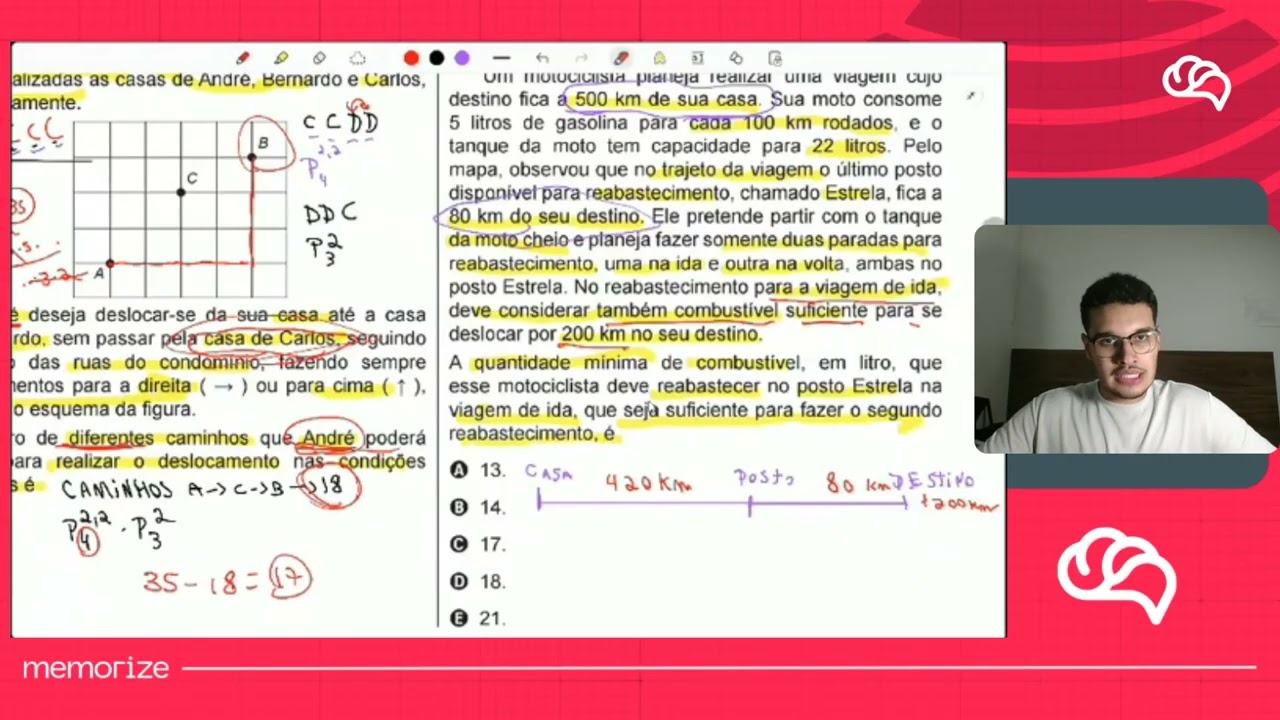 alizadas as casas de André, Bernardo e Carlos,
amente.
C C
B
C
A
35
C C D D
P 2,2 4
D D C
P 2 3
é deseja deslocar-se da sua casa até a casa
rdo, sem passar pela casa de Carlos, seguindo
das ruas do condomínio, fazendo sempre
entos para a direita ( → ) ou para cima ( ↑ ),
o esquema da figura.
ro de diferentes caminhos que André poderá
ara realizar o deslocamento nas condições
s é
CAMINHOS A->C->B -> 18
P 2,2 4 . P 2 3
35 - 18 = 17
Um motociclista planeja realizar uma viagem cujo
destino fica a 500 km de sua casa. Sua moto consome
5 litros de gasolina para cada 100 km rodados, e o
tanque da moto tem capacidade para 22 litros. Pelo
mapa, observou que no trajeto da viagem o último posto
disponível para reabastecimento, chamado Estrela, fica a
80 km do seu destino. Ele pretende partir com o tanque
da moto cheio e planeja fazer somente duas paradas para
reabastecimento, uma na ida e outra na volta, ambas no
posto Estrela. No reabastecimento para a viagem de ida,
deve considerar também combustível suficiente para se
deslocar por 200 km no seu destino.
A quantidade mínima de combustível, em litro, que
esse motociclista deve reabastecer no posto Estrela na
viagem de ida, que seja suficiente para fazer o segundo
reabastecimento, é
A 13.
B 14.
C 17.
D 18.
E 21.
CASA 420 KM POSTO 80 KM DESTINO
+200KM
memorize